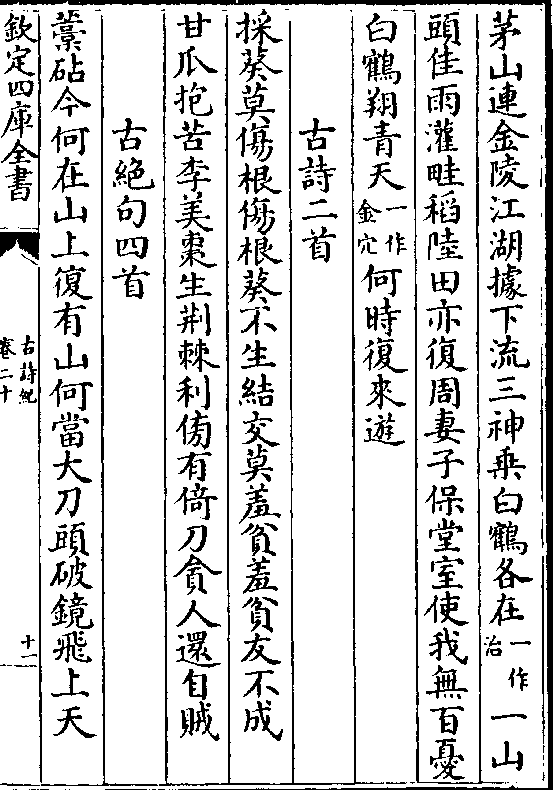 茅山連金陵江湖據下流三神乗白鶴各在一作治一山
頭佳雨灌畦稻陸田亦復周妻子保堂室使我無百憂
白鶴翔青天一作金穴何時復來遊
古詩二首
採葵莫傷根傷根葵不生結交莫羞貧羞貧友不成
甘瓜抱苦李美棗生荆棘利傍有倚刀貪人還自賊
古絶句四首
藁砧今何在山上復有山何當大刀頭破鏡飛上天
欽定四庫全書
古詩紀
卷二十
十一